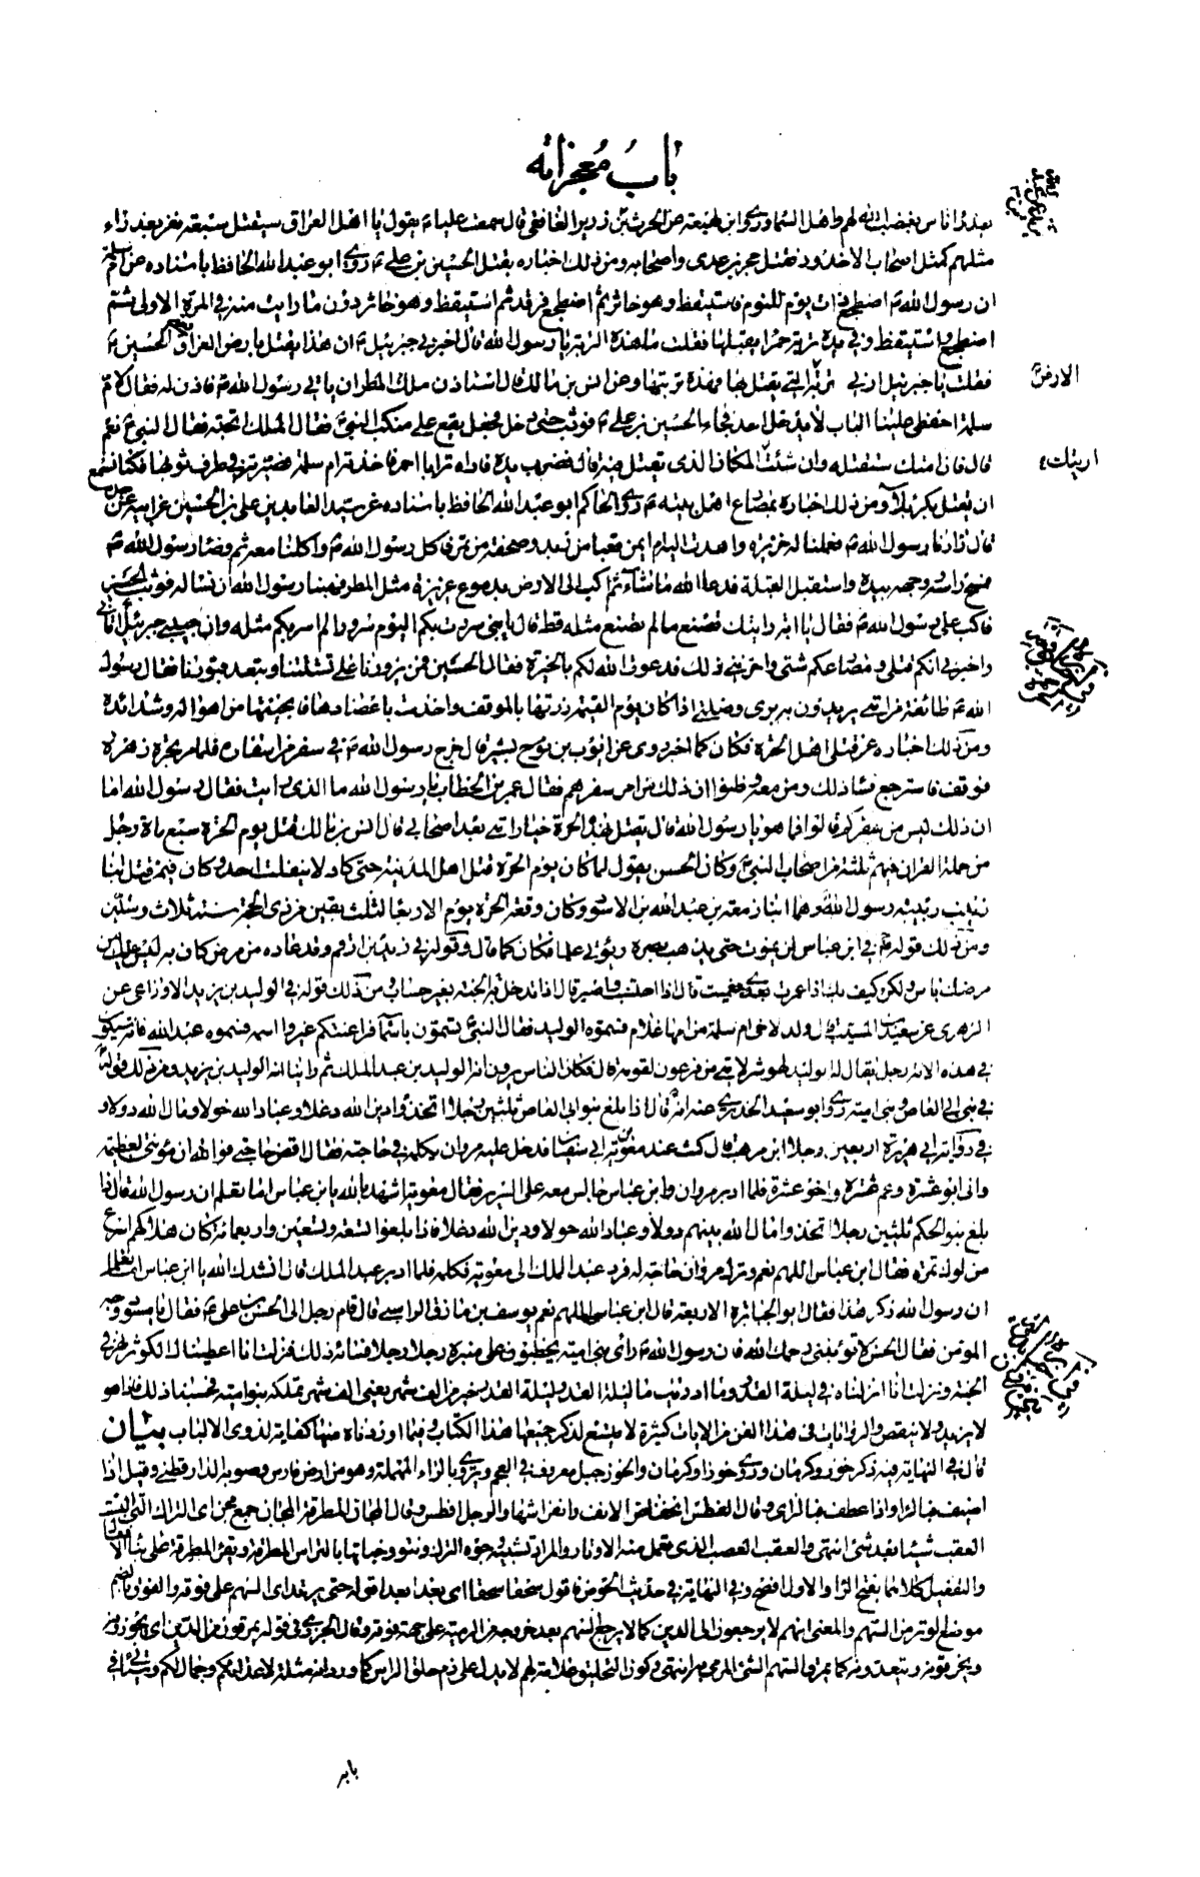 باب معجزاته
بعذرا ناس يغضب الله لهم واهل السماء وروى ابن لهيعة عن الحرث بن زرير الغافقي قال سمعت عليا ع يقول يا اهل العراق سيقتل سبعة نفر بعذراء
مثلهم كمثل اصحاب الاخدود فقتل حجر بن عدى واصحابه ومن ذلك اخباره بقتل الحسين بن علي ع روى ابو عبد الله الحافظ باسناده عن ام سلمة
ان رسول الله ص اضطجع ذات يوم للنوم فاستيقظ وهو خاثر ثم اضطجع فرقد ثم استيقظ وهو خاثر دون ما رايت منه في المرة الاولى ثم
اضطجع واستيقظ وفي يده تربة حمراء يقبلها فقلت ما هذه التربة يا رسول الله قال اخبرني جبرئيل ع ان هذا يقتل بارض العراق للحسين ع
فقلت يا جبرئيل ارني تربة التي يقتل بها فهذه تربتها وعن انس بن مالك قال استاذن ملك المطر ان ياتي رسول الله ص فاذن له فقال لام
الارض
سلمة احفظي علينا الباب لا يدخل احد فجاء الحسين بن علي ع فوثب حتى دخل فجعل يقع على منكب النبي ص فقال الملك اتحبه فقال النبي ص نعم
قال فان امتك ستقتله وان شئت المكان الذى يقتل فيه قال فضرب بيده فاراه ترابا احمر فاخذته ام سلمة فصيرته في طرف ثوبها فكنا نسمع
اريتك
ان يقتل بكربلا ومن ذلك اخباره بمصارع اهل بيته ع روى الحاكم ابو عبد الله الحافظ باسناده عن سيد العابدين علي بن الحسين عن ابيه عن جده
قال زارنا رسول الله ص فعملنا له خزيرة واهدت اليه ام ايمن قعبا من زبد وصحفة من تمر فاكل رسول الله ص واكلنا معه ثم وضأ رسول الله ص
فمسح راسه ووجهه بيده واستقبل القبلة فدعا الله ما شاء ثم اكب الى الارض بدموع غزيرة مثل المطر فهبنا رسول الله ان نساله فوثب الحسين
فاكب على رسول الله ص فقال يا ابه رايتك تصنع ما لم تصنع مثله قط قال يا بني سررت بكم اليوم سرورا لم اسر بكم مثله وان حبيبي جبرئيل اتاني
واخبرني انكم قتلى ومصارعكم شتى واحزنني ذلك فدعوت الله لكم بالخيرة فقال الحسين فمن يزورنا على تشتتنا ويتعهد قبورنا فقال رسول
الله ص طائفة من امتي يريدون به بري وصلتي اذا كان يوم القيمة زرتها بالموقف واخذت باعضادها فانجيتها من اهواله وشدائده
ومن ذلك اخباره عن قتلى اهل الحرة فكان كما اخبر روى عن ايوب بن بشير قال خرج رسول الله ص في سفر من اسفاره فلما مر بحرة زهرة
فوقف فاسترجع فساء ذلك ومن معه وظنوا ان ذلك من امر سفرهم فقال عمر بن الخطاب يا رسول الله ما الذى رايت فقال رسول الله اما
ان ذلك ليس من سفركم قالوا فما هو يا رسول الله قال يقتل بهذه الحرة خيار امتي بعد اصحابي قال انس بن مالك قتل يوم الحرة سبع مائة رجل
من حملة القران فيهم ثلثة من اصحاب النبي ص وكان الحسن يقول لما كان يوم الحرة قتل اهل المدينة حتى كاد لا ينفلت احد وكان فيمن قتل ابنا
زينب ربيبة رسول الله وهما ابنا زمعة بن عبد الله بن الاسود وكان وقعة الحرة يوم الاربعا لثلث بقين من ذى الحجة سنة ثلاث وستين
ومن ذلك قوله في ابن عباس لن يموت حتى يذهب بصره ويؤتى علما فكان كما قال وقوله في زيد بن ارقم وقد عاده من مرض كان به ليس عليك من
مرضك باس ولكن كيف بك اذا عمرت بعدى فعميت قال اذا احتسب واصبر قال اذا تدخل الجنة بغير حساب ومن ذلك قوله في الوليد بن يزيد الاوزاعي عن
الزهرى عن سعيد بن المسيب قال ولد لاخي ام سلمة من امها غلام فسموه الوليد فقال النبي تسمون باسماء فراعنتكم غيروا اسمه فسموه عبد الله فانه سيكون
في هذه الامة رجل يقال له الوليد لهو شر لامتي من فرعون لقومه قال فكان الناس يرون انه الوليد بن عبد الملك ثم راينا انه الوليد بن يزيد ومن ذلك قوله
في بني ابي العاص وبني امية روى ابو سعيد الخدرى عنه انه قال اذا بلغ بنو ابي العاص ثلثين رجلا اتخذوا دين الله دغلا وعباد الله خولا ومال الله دولا و
في رواية ابي هريرة اربعين رجلا ابن موهب قال كنت عند معوية بن ابي سفيان فدخل عليه مروان يكلمه في حاجته فقال اقض حاجتي فوالله ان مؤنتي لعظيمة
واني ابو عشرة وعم عشرة واخو عشرة فلما ادبر مروان وابن عباس جالس معه على السرير فقال معوية اشهد بالله يا ابن عباس اما تعلم ان رسول الله قال اذا
بلغ بنو الحكم ثلثين رجلا اتخذوا مال الله بينهم دولا وعباد الله خولا ودين الله دغلا فاذا بلغوا تسعة وتسعين واربعمائة كان هلاكهم اسرع
من لوك تمرة فقال ابن عباس اللهم نعم وترك مروان حاجة له فرد عبد الملك الى معوية فكلمه فلما ادبر عبد الملك قال انشدك الله يا ابن عباس اما تعلم
ان رسول الله ذكر هذا فقال ابو الجبابرة الاربعة قال ابن عباس اللهم نعم يوسف بن مازن الراسبي قال قام رجل الى الحسن بن علي ع فقال يا مسود وجه
المؤمن فقال الحسن لا تؤنبني رحمك الله فان رسول الله ص رأى بني امية يخطبون على منبره رجلا رجلا فساءه ذلك فنزلت انا اعطيناك الكوثر نهر في
الجنة ونزلت انا انزلناه في ليلة القدر وما ادريك ما ليلة القدر ليلة القدر خير من الف شهر يعني الف شهر تملكه بنو امية فحسبنا ذلك فاذا هو
لا يزيد ولا ينقص والروايات في هذا الفن من الايات كثيرة لا يتسع لذكر جميعها هذا الكتاب وفيما اوردناه منها كفاية لذوى الالباب بيان
قال في النهاية فيه ذكر خوز وكرمان وروى خوزا وكرمان والخوز جبل معروف في العجم ويروى بالراء المهملة وهو من ارض فارس وصوبه الدارقطني وقيل اذا
اضيف فبالراء واذا عطف فبالزاى وقال الفطس انخفاض الانف وانفراشها والرجل افطس وقال المجان المطرقة المجان جمع مجن اى التراك التي البست
العقب شيئا بعد شئ انتهى والعقب العصب الذى تعمل منه الاوتار والمراد تشبيه وجوه الترك ونتو وجناتها بالتراس المطرقة وتقرء المطرقة على بناء الافعال
والتفعيل كلاهما بفتح الراء والاول افصح وفي النهاية في حديث الحوض فاقول سحقا سحقا اى بعدا بعدا قوله حتى يرتد اى السهم على فوقه والفوق بالضم
موضع الوتر من السهم والمعنى انهم لا يرجعون الى الدين كما لا يرجع السهم بعد خروجه من الرمية على جهة فوقه وقال الجزرى في قوله يمرقون من الدين اى يجوزونه
ويخرقونه ويتعدونه كما يمرق السهم الشئ المرمي به انتهى وكون التحليق علامة لهم لا يدل على ذم حلق الراس كما ورد انه مثلة لاعدائكم وجمال لكم وسياتي في
بابه